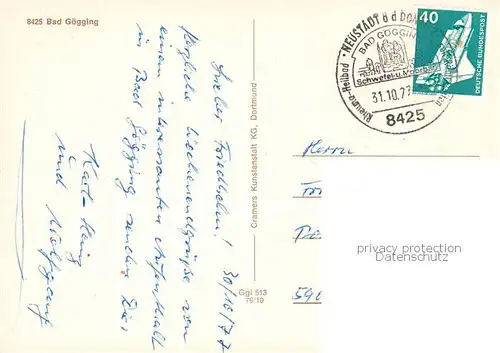 8425 Bad Gögging
Lieber Friedhelm! 30/10/77
Herzliche Wochenendgrüße von
einem interessanten Aufenthalt
in Bad Gögging senden Dir
Karl-Heinz
und Wolfgang
Cramers Kunstanstalt KG, Dortmund
Ggi 513
76/10
NEUSTADT a d DONAU
BAD GÖGGING
Schwefel-u. Moorbad
Rheuma-Heilbad
31.10.77
8425
40
DEUTSCHE BUNDESPOST
Herrn
590
privacy protection
Datenschutz